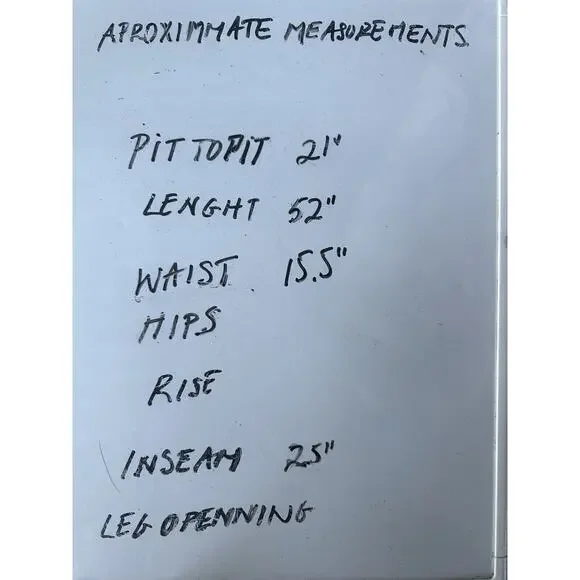 APROXIMMATE MEASUREMENTS
PIT TO PIT 21"
LENGHT 52"
WAIST 15.5"
HIPS
RISE
INSEAM 25"
LEG OPENNING